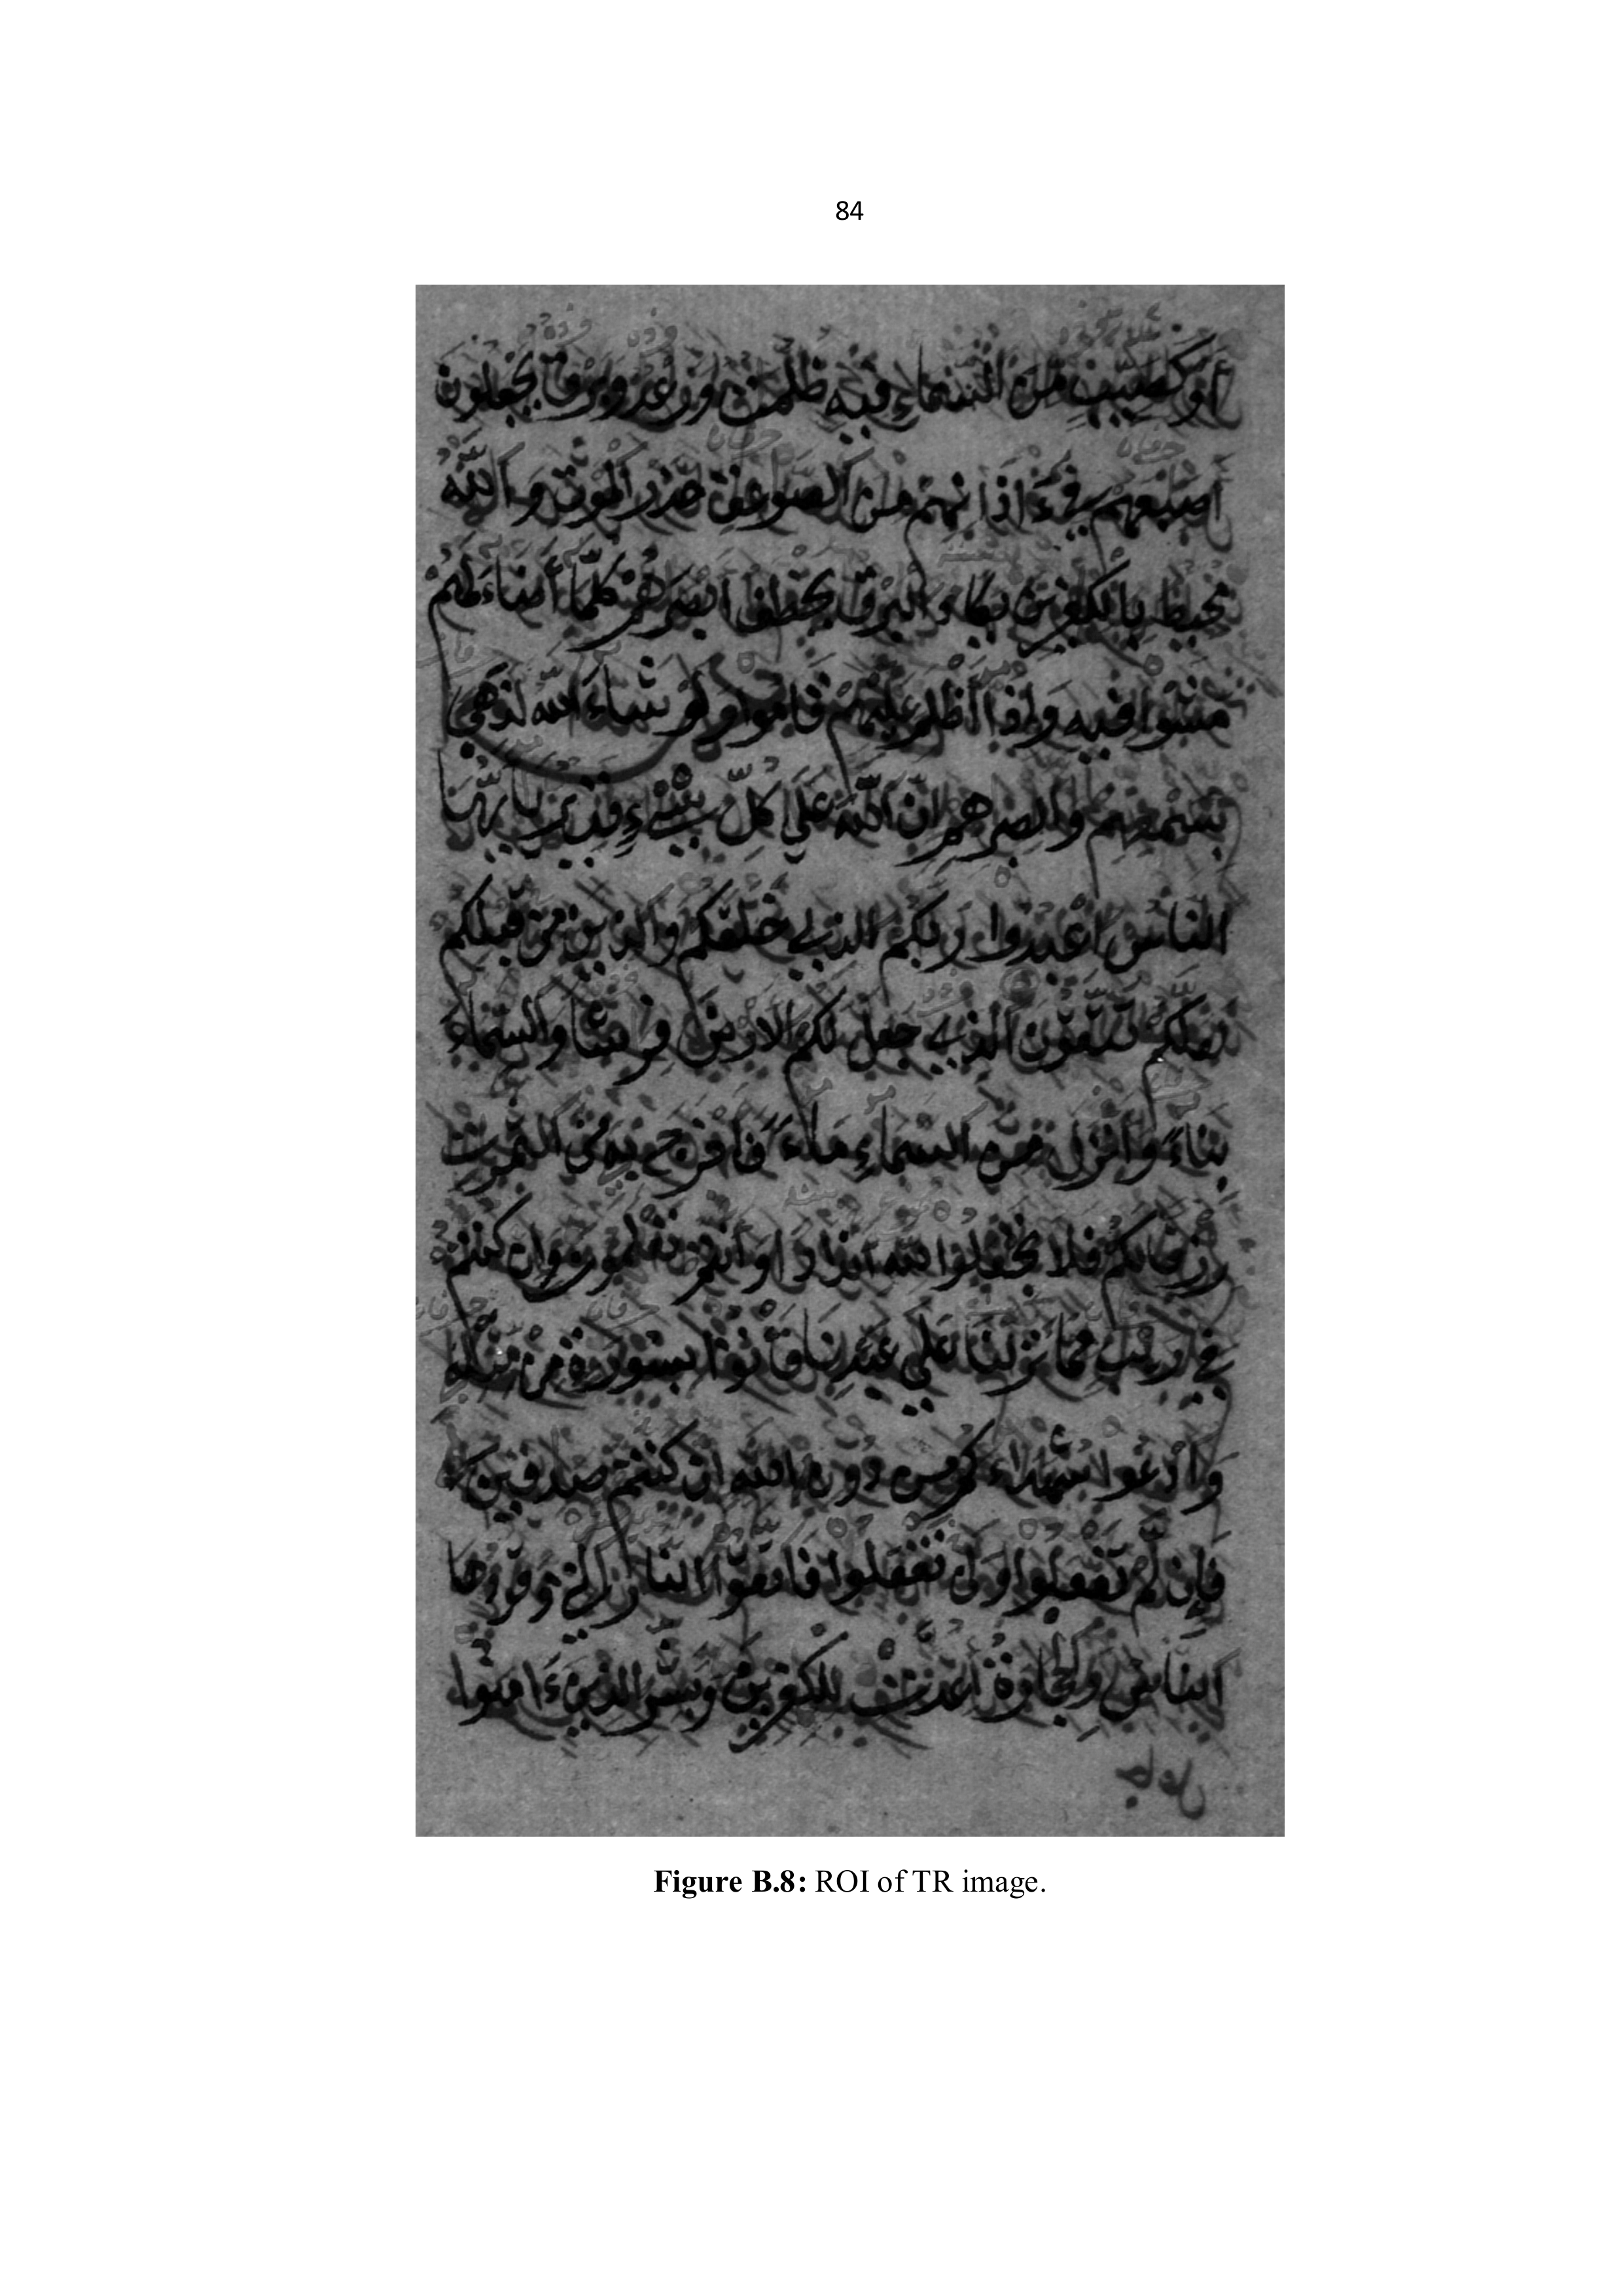 84
أو كصيب من السماء فيه ظلمت ورعد وبرق يجعلون
أصبعهم في ءاذانهم من الصوعق حذر الموت والله
محيط بالكفرين يكاد البرق يخطف أبصرهم كلما أضاء لهم
مشوا فيه وإذا أظلم عليهم قاموا ولو شاء الله لذهب
بسمعهم وأبصرهم إن الله على كل شيء قدير يأيها
الناس اعبدوا ربكم الذي خلقكم والذين من قبلكم
لعلكم تتقون الذي جعل لكم الارض فرشا والسماء
بناء وأنزل من السماء ماء فأخرج به من الثمرت
رزقا لكم فلا تجعلوا لله أندادا وأنتم تعلمون وإن كنتم
في ريب مما نزلنا على عبدنا فأتوا بسورة من مثله
وادعوا شهداءكم من دون الله إن كنتم صدقين
فإن لم تفعلوا ولن تفعلوا فاتقوا النار التي وقودها
الناس والحجارة أعدت للكفرين وبشر الذين ءامنوا
Figure B.8: ROI of TR image.